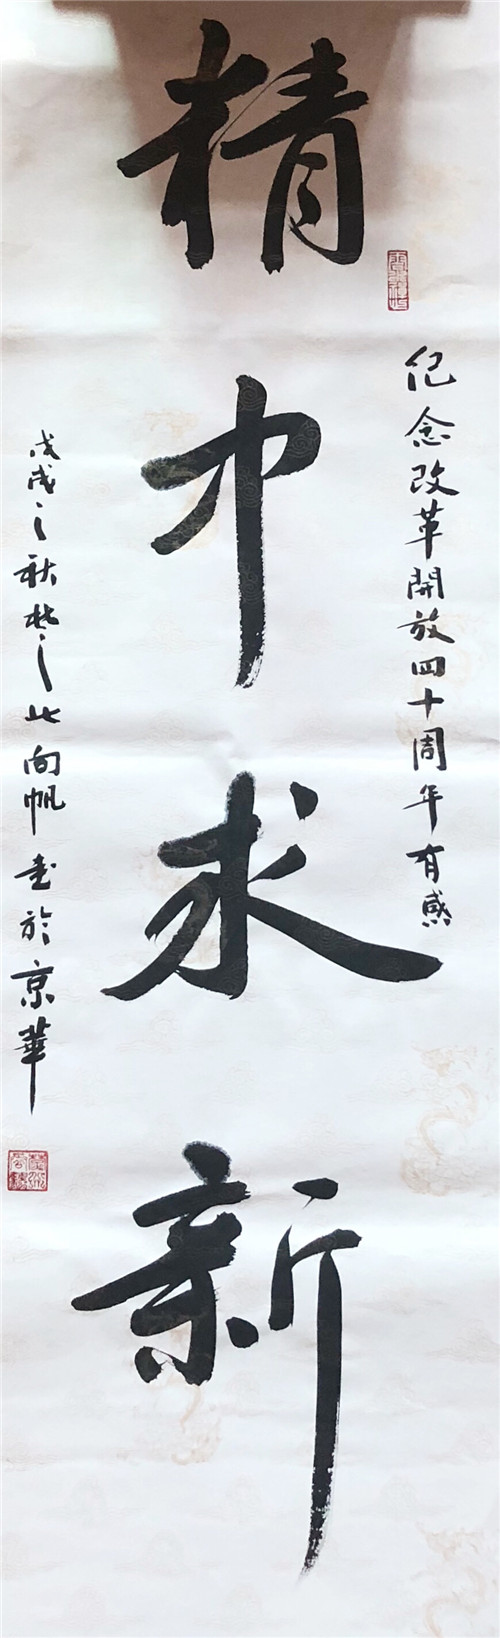 纪念改革開放四十周年有感
精中求新
戊戌之秋楚之北向帆書於京華